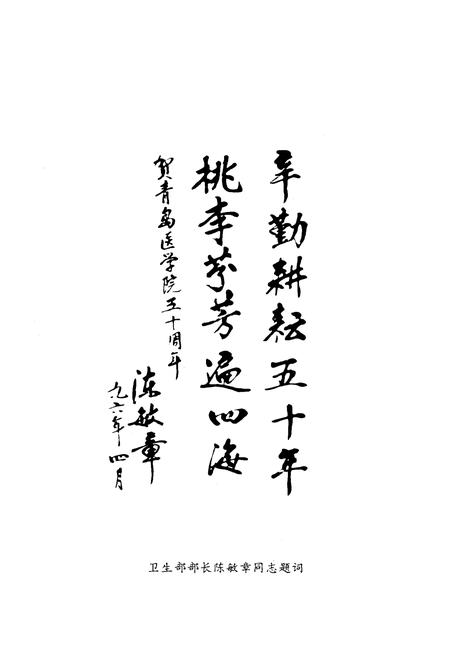 辛勤耕耘五十年
桃李芬芳遍四海
贺青岛医学院五十周年
陈敏章
九六年四月
卫生部部长陈敏章同志题词